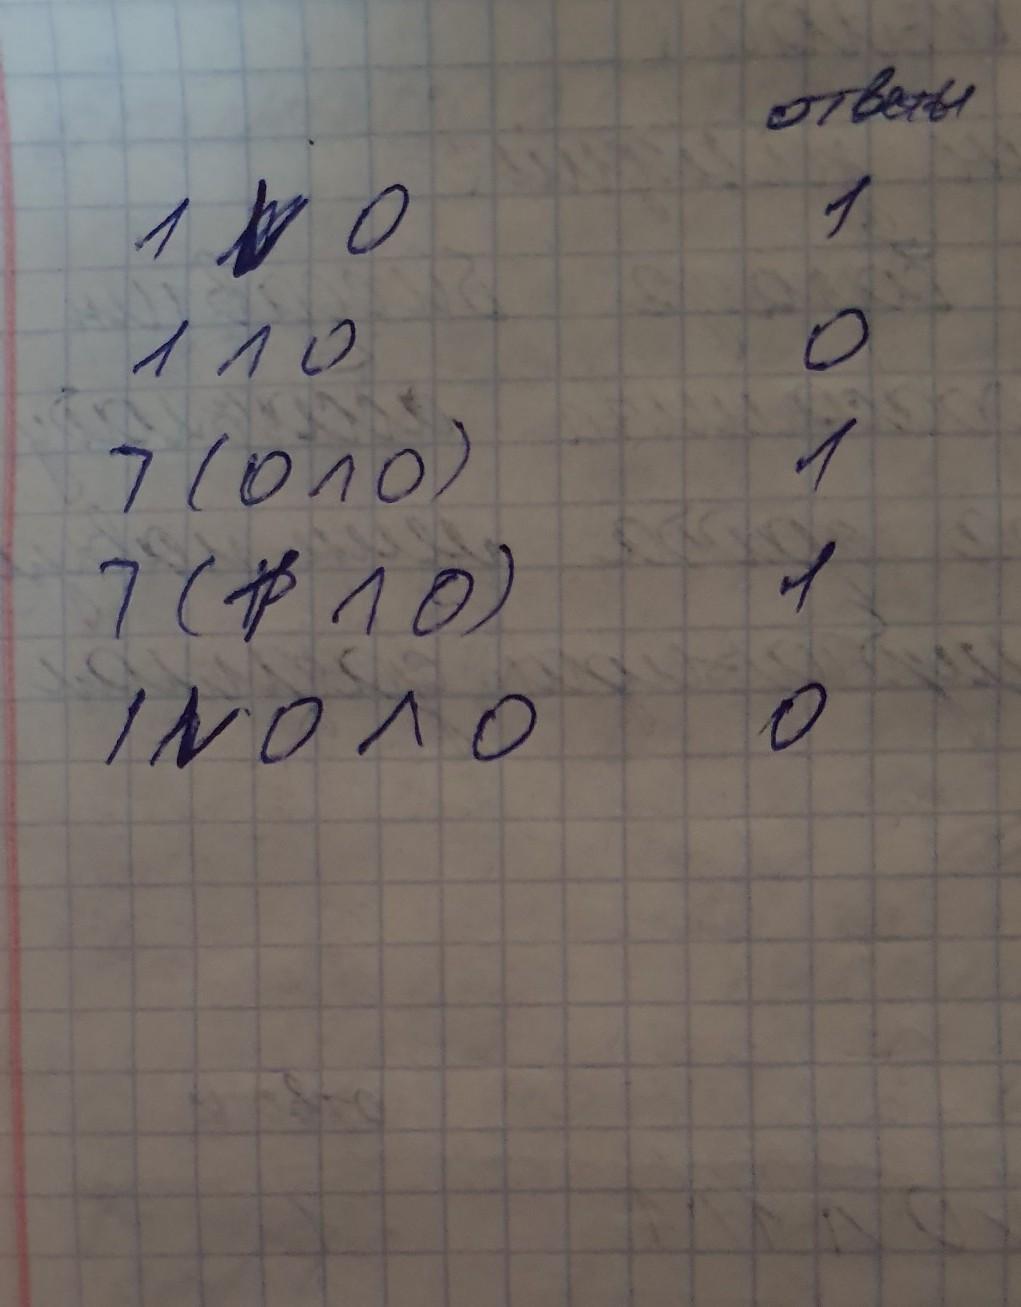 ответы
1 V 0 1
1 ∧ 0 0
¬ (0 ∧ 0) 1
¬ (1 ∧ 0) 1
1 V 0 ∧ 0 0